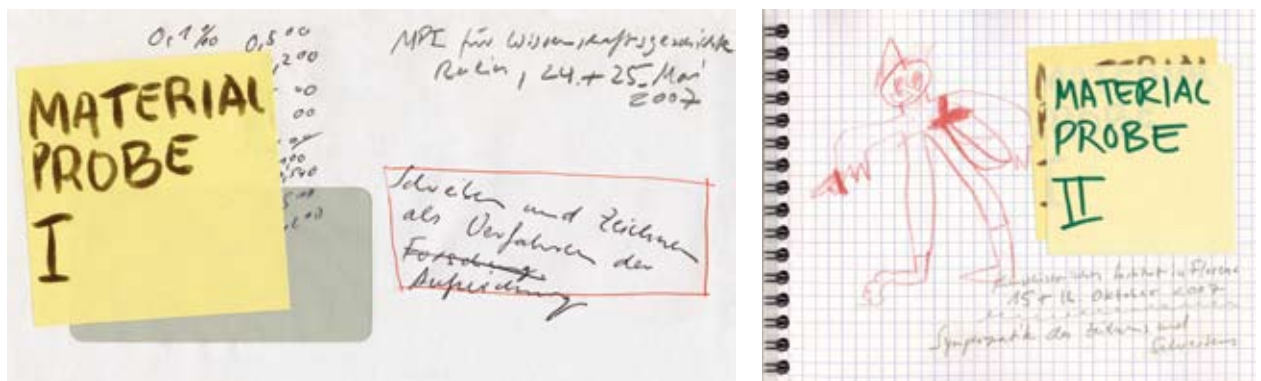 0,1‰ 0,5⁰⁰
MPI für Wissenschaftsgeschichte
Berlin, 24.+25. Mai
2007
MATERIAL
PROBE
I
Schreiben und Zeichnen
als Verfahren der
Forschung
Aufzeichnung
MATERIAL
PROBE
II
Kunsthistorisches Institut in Florenz
15 + 16. Oktober 2007
des Zeichnens und
Schreibens